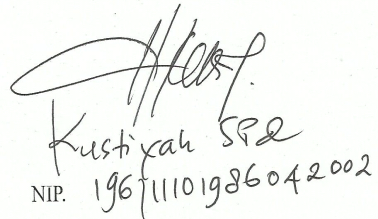 Kustiyah SPd
NIP. 196711101986042002